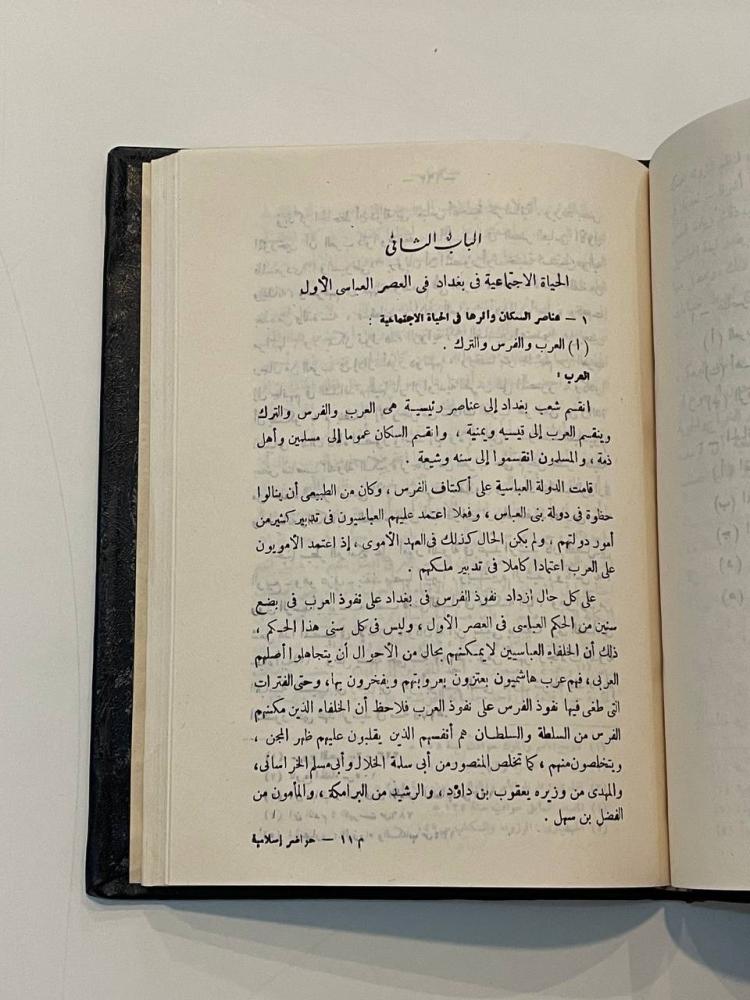 الباب الثاني
الحياة الاجتماعية فى بغداد فى العصر العباسى الأول
١ - عناصر السكان وأثرها فى الحياة الاجتماعية :
(١) العرب والفرس والترك .
العرب :
انقسم شعب بغداد إلى عناصر رئيسية هى العرب والفرس والترك
وينقسم العرب إلى قيسيه ويمنية ، وانقسم السكان عموما إلى مسلمين وأهل
ذمة ، والمسلمون انقسموا إلى سنه وشيعة .
قامت الدولة العباسية على أكتاف الفرس ، وكان من الطبيعى أن ينالوا
حظوة فى دولة بنى العباس ، وفعلا اعتمد عليهم العباسيون فى تدبير كثير من
أمور دولتهم ، ولم يكن الحال كذلك فى العهد الأموى ، إذ اعتمد الأمويون
على العرب اعتمادا كاملا فى تدبير ملكهم .
على كل حال إزداد نفوذ الفرس فى بغداد على نفوذ العرب فى بضع
سنين من الحكم العباسى فى العصر الأول ، وليس فى كل سنى هذا الحكم ،
ذلك أن الخلفاء العباسيين لا يمكنهم بحال من الأحوال أن يتجاهلوا أصلهم
العربى ، فهم عرب هاشميون يعتزون بعروبتهم ويفخرون بها ، وحتى الفترات
التى طغى فيها نفوذ الفرس على نفوذ العرب فلاحظ أن الخلفاء الذين مكنتهم
الفرس من السلطة والسلطان هم أنفسهم الذين يقلبون عليهم ظهر المجن ،
ويتخلصون منهم ، كما تخلص المنصور من أبى سلمة الخلال وأبى مسلم الخراسانى ،
والمهدى من وزيره يعقوب بن داؤد ، والرشيد من البرامكة ، والمأمون من
الفضل بن سهل .
م ١١ - حواضر إسلامية